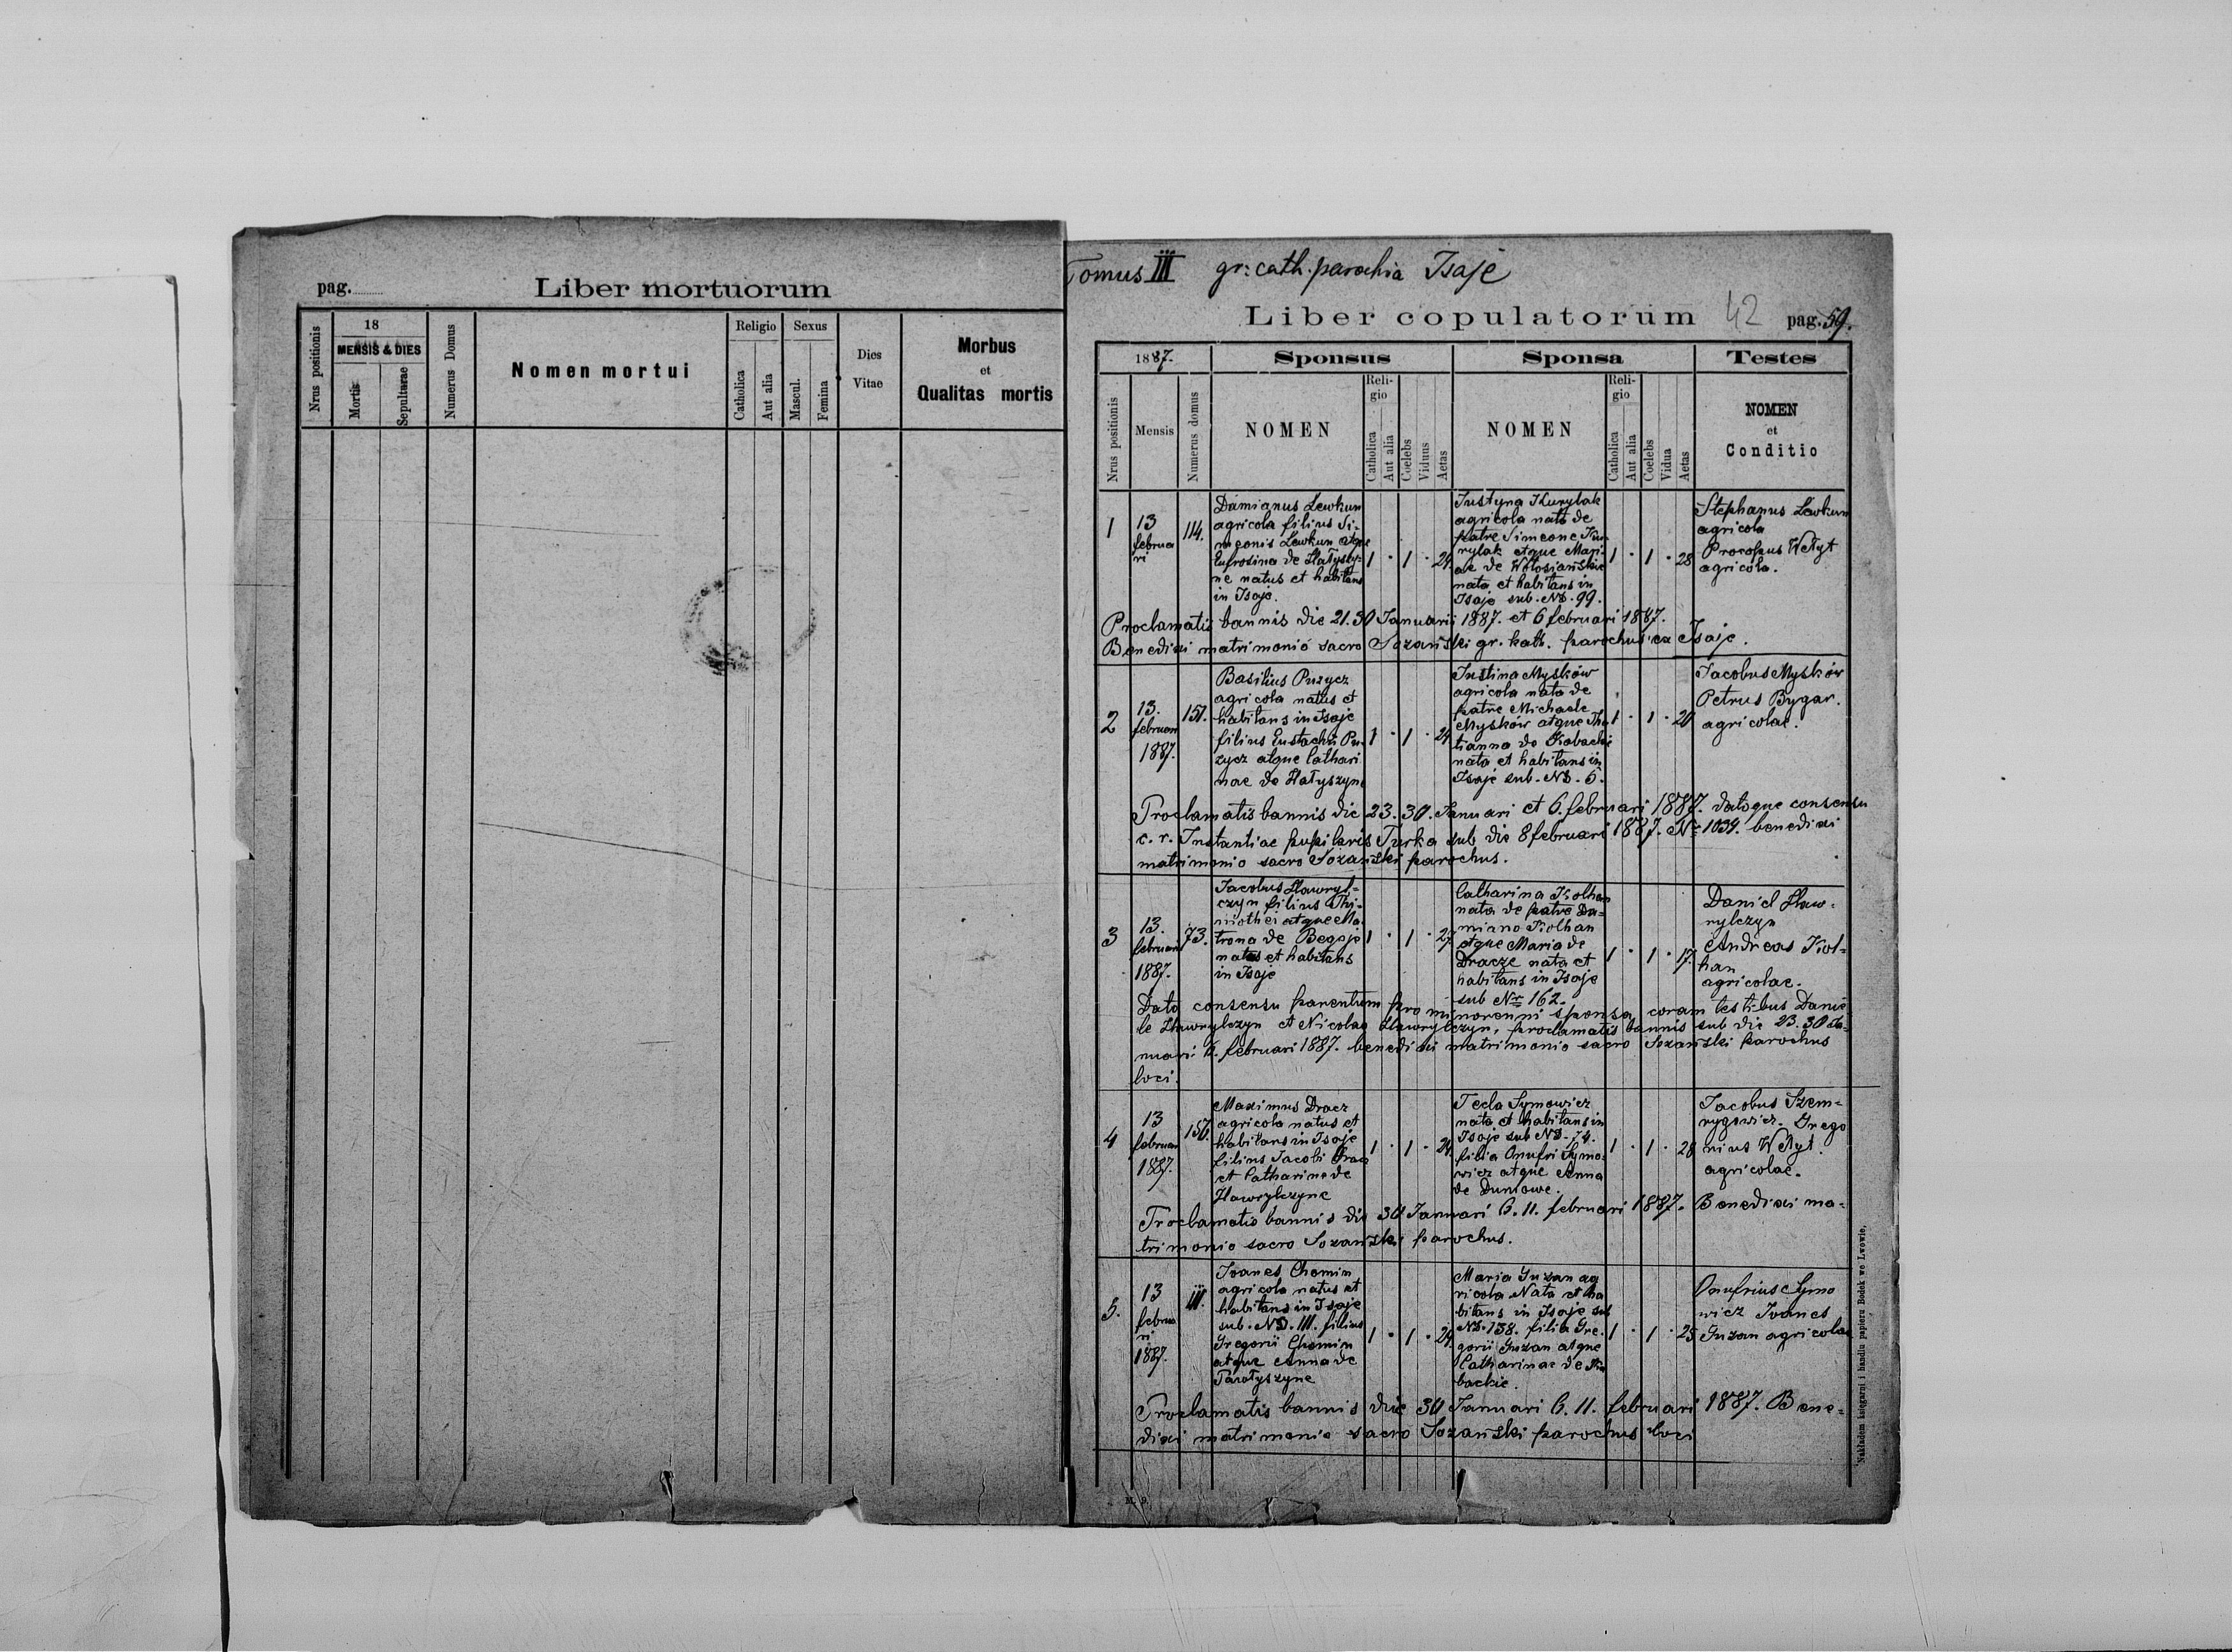 pag.
Liber mortuorum
Nrus positionis
18
MENSIS & DIES
Mortis
Sepulturae
Numerus Domus
Nomen mortui
Religio
Catholica
Aut alia
Sexus
Mascul.
Femina
Dies
Vitae
Morbus
et
Qualitas mortis
Tomus III gr: cath. parochia Isaje
Liber copulatorum 42 pag. 59.
1887.
Sponsus
Sponsa
Testes
Nrus positionis
Mensis
Numerus domus
NOMEN
Reli-
gio
Catholica
Aut alia
Coelebs
Viduus
Aetas
NOMEN
Reli-
gio
Catholica
Aut alia
Coelebs
Vidua
Aetas
NOMEN
et
Conditio
1
13
februa
ri
114.
Damianus Lewkun
agricola filius Si-
meonis Lewkun atque
Eufrosina de Hałyszy-
ne natus et habitans
in Isaje.
1 · 1 · 24.
Justyna Kurylak
agricola nata de
patre Simeone Ku-
rylak atque Mari-
ae de Wołosiańskie
nata et habitans in
Isaje sub. ND. 99.
1 · 1 · 28
Stephanus Lewkun
agricola
Procopus Wołyt
agricola.
Proclamatis bannis die 21. 30 Januarii 1887. et 6 februari 1887.
Benedixi matrimonió sacro Sozański gr. kath. parochus ex Isaje.
2
13.
februari
1887.
151.
Basilius Puzycz
agricola natus et
habitans in Isaje
filius Eustachii Pu-
zycz atque Cathari
nae de Hałyszyn
1 · 1 · 24
Justina Mysków
agricola nata de
patre Michaele
Mysków atque Ta
tianna de Kobackie
nata et habitans in
Isaje sub. ND. 6.
1 · 1 · 20
Jacobus Mysków
Petrus Bygar.
agricolae.
Proclamatis bannis die 23. 30. Januari et 6. februari 1887. datoque consensu
c. r. Instantiae pupilaris Turka sub die 8 februari 1887. Nr 1039. benedixi
matrimonio sacro Sozański parochus.
3
13.
februari
1887.
73.
Jacobus Hawryl-
czyn filius Thi-
mothei atque Ma-
trona de Begeje
natus et habitans
in Isaje
1 · 1 · 27.
Catharina Kolhan
nata de patre Da-
miano Kolhan
atque Maria de
Dracze nata et
habitans in Isaje
sub Nr 162.
1 · 1 · 17.
Daniel Haw-
rylczyn
Andreas Kol-
han
agricolae.
Dato consensu parentum pro minorenni sponsa, coram testibus Danie
le Hawrylczyn et Nicolao Hawrylczyn, proclamatis bannis sub die 23. 30 Ja-
nuari 6. februari 1887. benedixi matrimonio sacro Sozański parochus
loci.
4
13
februari
1887.
Maximus Dracz
agricola natus et
habitans in Isaje
filius Jacobi Dracz
et Catharina de
Hawrylczyne
1 · 1 · 24.
Tecla Symowicz
nata et habitans in
Isaje sub ND. 74.
filia Onufri Symo-
wicz atque Anna
de Duniowe.
1 · 1 · 28
Jacobus Szem-
rygowicz. Grego
rius Wołyt.
agricolae.
Proclamatis bannis die 30 Januari 6. 11. februari 1887. Benedixi ma-
trimonio sacro Sozański parochus.
5.
13
februa
ri
1887.
111.
Ioanes Chomin
agricola natus et
habitans in Isaje
sub. ND. 111. filius
Gregorii Chomin
atque Anna de
Parałyszyne
1 · 1 · 24.
Maria Guzan ag
ricola Nata et ha
bitans in Isaje sub
ND. 138. filia Gre-
gorii Guzan atque
Catharinae de
backie.
1 · 1 · 25
Onufrius Symo
wicz Ioanes
Guzan agricolae
Proclamatis bannis die 30 Januari 6. 11. februari 1887. Bene-
dixi matrimonio sacro Sozański parochus loci
M. 9.
Nakładem księgarni i handlu papieru Bodek we Lwowie.